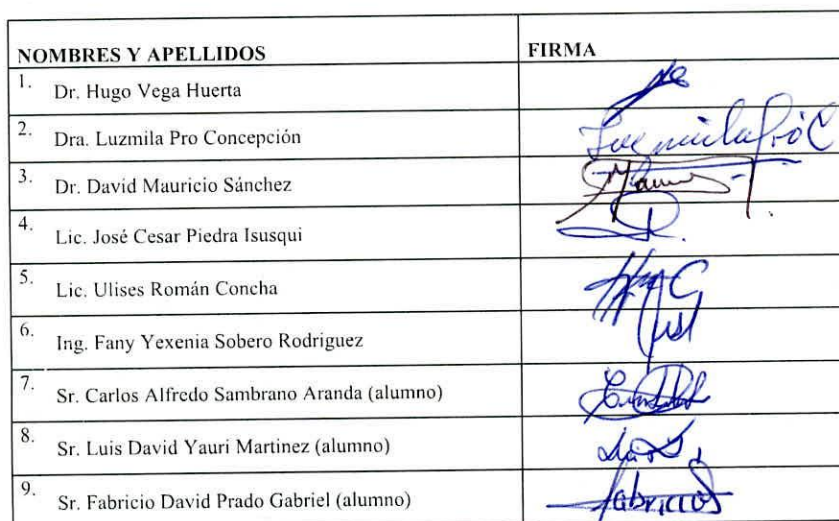 NOMBRES Y APELLIDOS FIRMA
1. Dr. Hugo Vega Huerta
2. Dra. Luzmila Pro Concepción Luzmila Pró C
3. Dr. David Mauricio Sánchez
4. Lic. José Cesar Piedra Isusqui
5. Lic. Ulises Román Concha
6. Ing. Fany Yexenia Sobero Rodriguez
7. Sr. Carlos Alfredo Sambrano Aranda (alumno)
8. Sr. Luis David Yauri Martinez (alumno)
9. Sr. Fabricio David Prado Gabriel (alumno) Fabricio